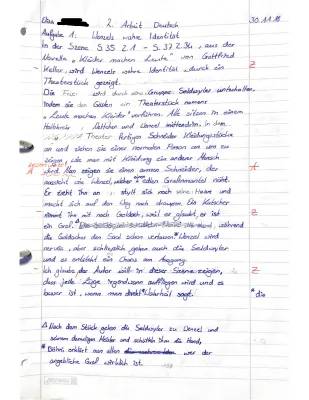 2. Arbeit Deutsch 30.11.18
Aufgabe 1: Wenzels wahre Identität
In der Szene S.35 Z.1 - S.37 Z.34, aus der
Novelle "Kleider machen Leute" von Gottfried
Keller, wird Wenzels wahre Identität durch ein
Theaterstück gezeigt. Z
Die wird durch eine Gruppe Seldwyler unterhalten,
indem sie den Gästen ein Theaterstück namens
"Leute machen Kleider" vorführen. Alle sitzen in einem
Halbkreis, Nettchen und Wenzel mittendrin, in dem
Theater fertigen Schneider Kleidungsstücke
an und ziehen sie einer normalen Person an um zu
zeigen, wie man mit Kleidung ein anderer Mensch
wird. Dann zeigen sie einen armen Schneider, der
aussieht wie Wenzel, edlen Grafenmantel näht.
Er zieht ihn an, stylt sich noch eine Haare und
macht sich auf den Weg nach draußen. Ein Kutscher
nimmt ihn mit nach Goldach, weil er glaubt, er ist Z
ein Graf. während
die Goldacher den Saal schon verlassen. Wenzel wird
nervös, aber schließlich gehen auch die Seldwyler
und es entsteht ein Chaos am Ausgang.
Ich glaube, der Autor will in dieser Szene zeigen, Z
dass jede Lüge irgendwann auffliegen wird und es
besser ist, wenn man direkt* Wahrheit sagt. * die
Nach dem Stück gehen die Seldwyler zu Wenzel und
seinem damaligen Meister und schütteln ihm die Hand,
* Böhni erklärt aan allen wer der
angebliche Graf wirklich ist.